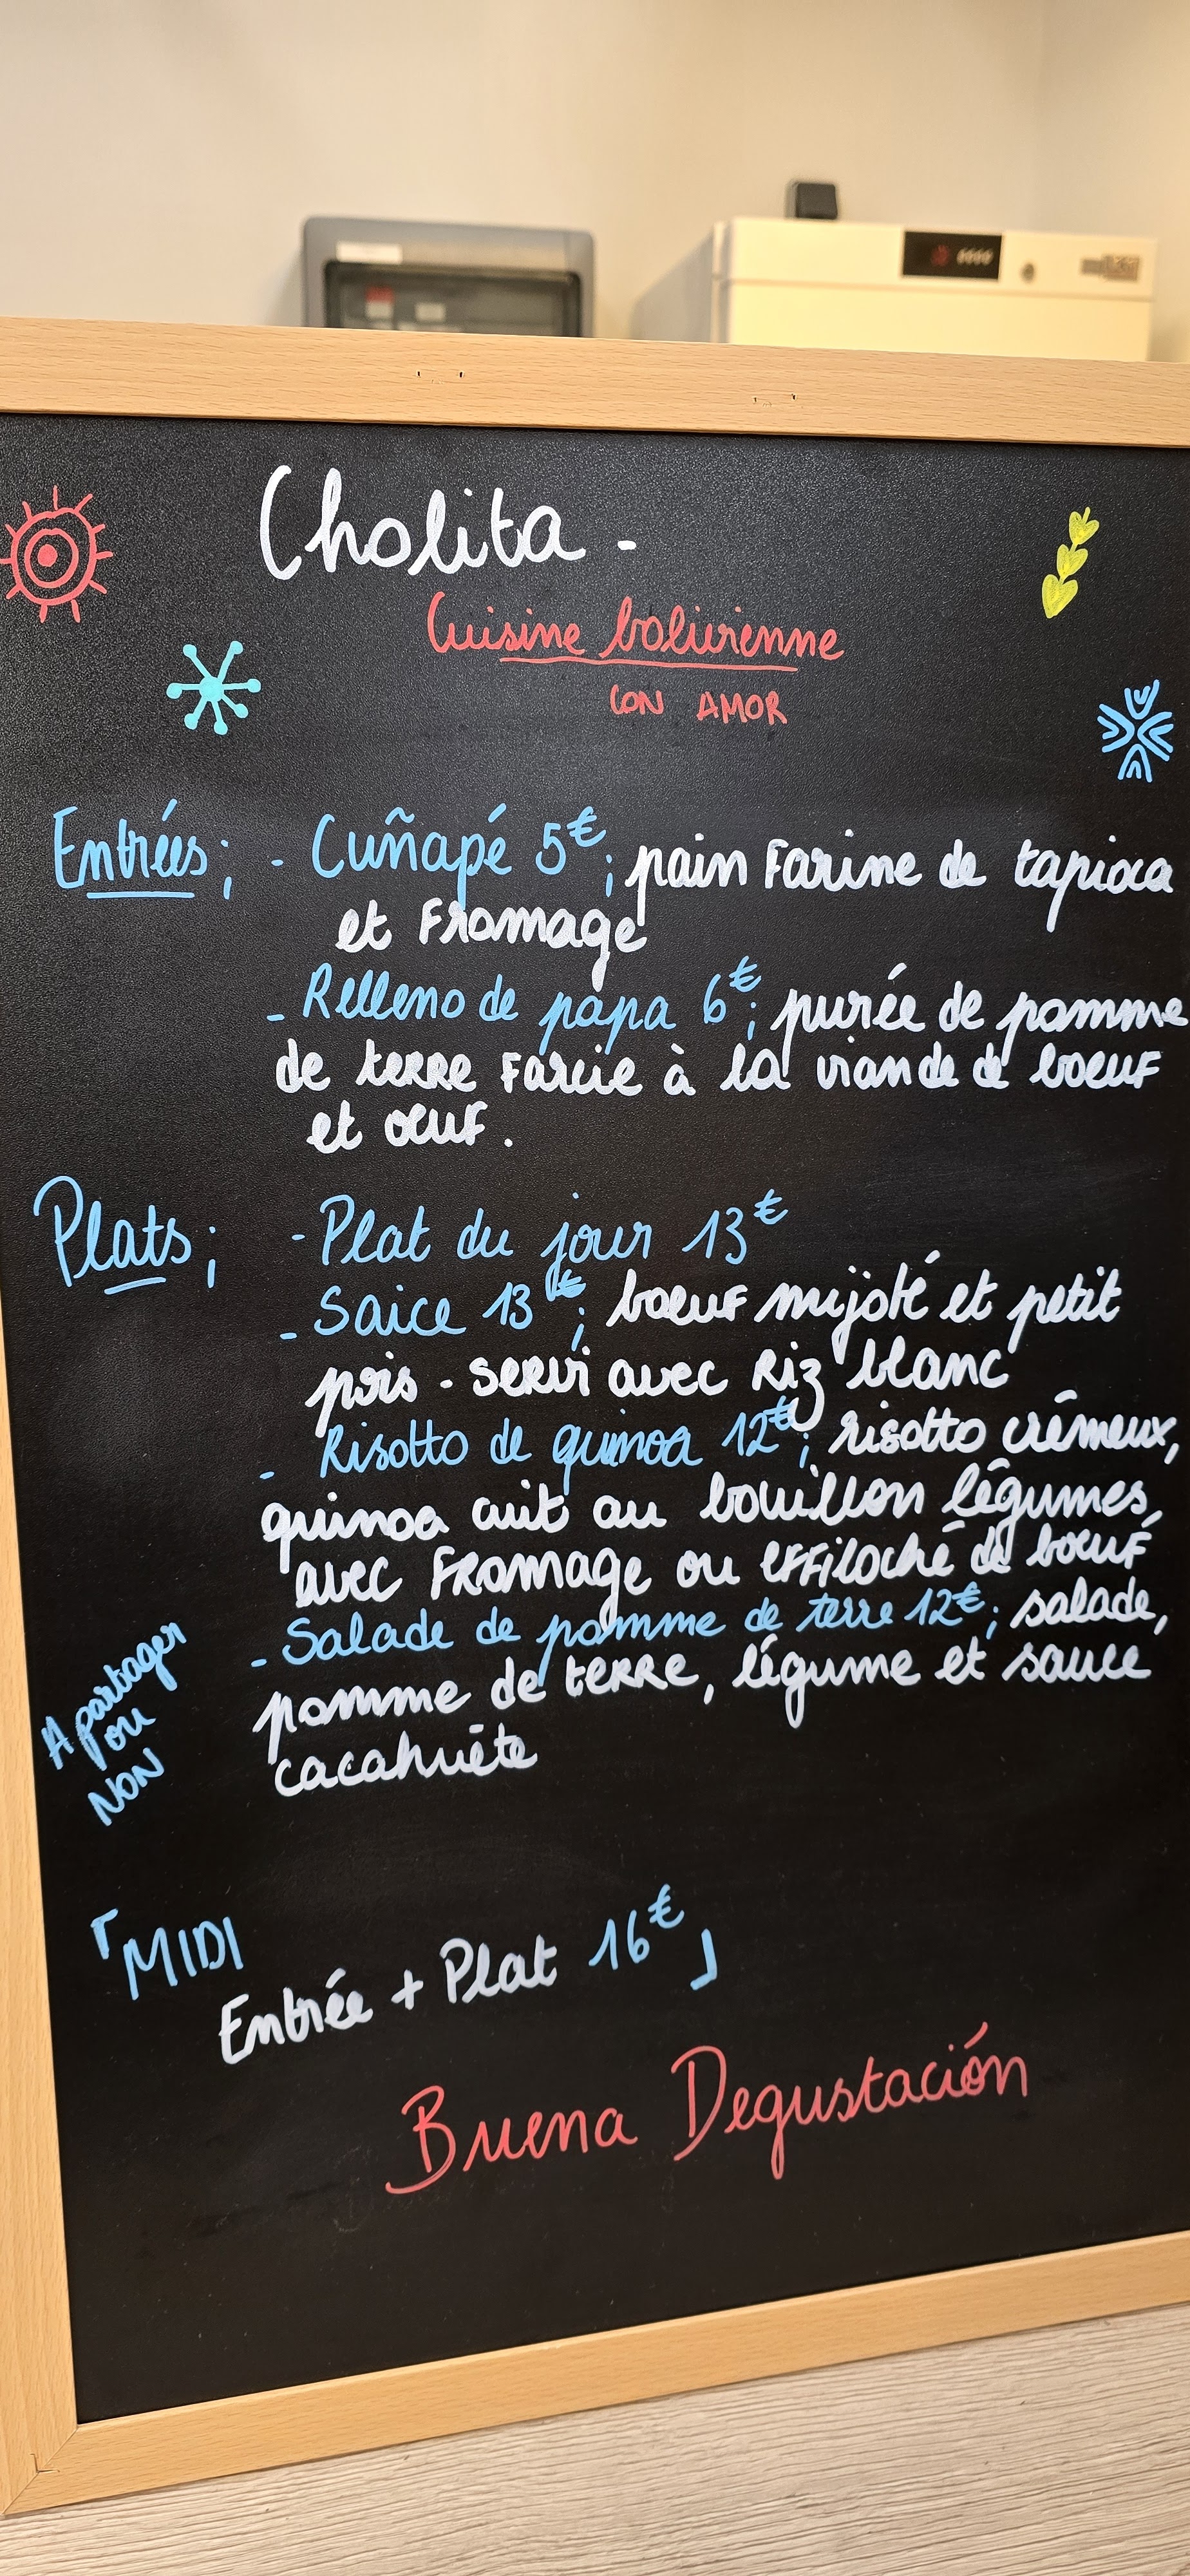 Cholita -
Cuisine bolivienne
CON AMOR
Entrées; - Cuñapé 5€; pain Farine de tapioca
et Fromage
- Relleno de papa 6€; purée de pomme
de terre Farcie à la viande de boeuf
et oeuf.
Plats; - Plat du jour 13€
- Saice 13€; boeuf mijoté et petit
pois - servi avec Riz blanc
- Risotto de quinoa 12€; risotto crémeux,
quinoa cuit au bouillon légumes
avec Fromage ou effiloché de boeuf
- Salade de pomme de terre 12€; salade,
pomme de terre, légume et sauce
cacahuète
A partager
ou
NON
「MIDI
Entrée + Plat 16€」
Buena Degustación